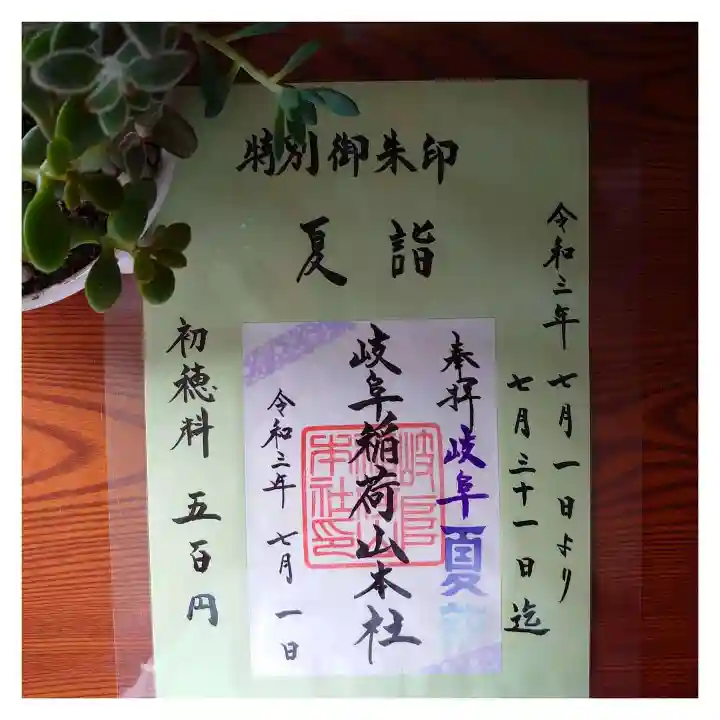 特別御朱印
夏詣
令和三年 七月一日より
七月三十一日迄
奉拝
岐阜夏詣
岐阜稲荷山本社
令和三年 七月一日
初穂料 五百円